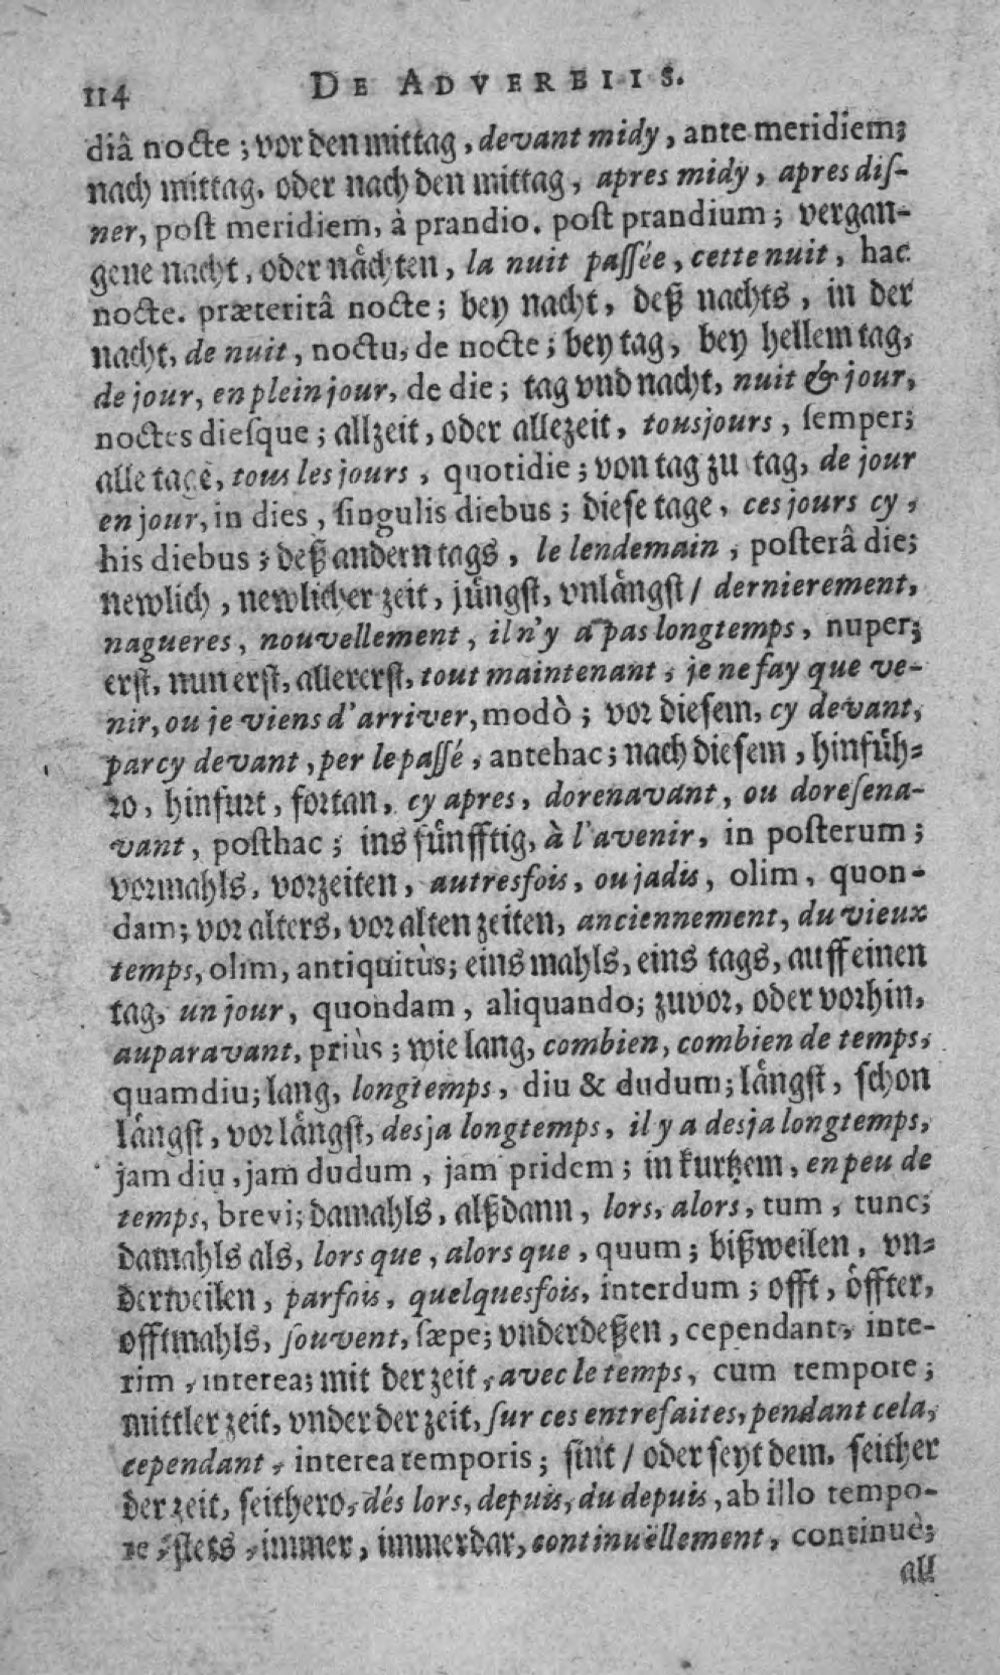 114 DE ADVERBIIS.
diâ nocte ; vor den mittag , devant midy , ante meridiem;
nach mittag, oder nach den mittag , apres midy , apres diſ-
ner, poſt meridiem, à prandio. poſt prandium ; vergan-
gene nacht , oder nåchten , la nuit paſſée , cette nuit , hac
nocte. præteritâ nocte ; bey nacht, deß nachts , in der
nacht, de nuit , noctu, de nocte ; bey tag , bey hellem tag,
de jour, en plein jour, de die ; tag vnd nacht, nuit & jour,
noctes dieſque ; allzeit , oder allezeit , tousjours , ſemper;
alle tage, tous les jours , quotidie ; von tag zu tag, de jour
en jour, in dies , ſingulis diebus ; dieſe tage , ces jours cy ,
his diebus ; deß andern tags , le lendemain , poſterâ die;
newlich , newlicher zeit , jüngſt, vnlångſt / dernierement,
nagueres, nouvellement , il n'y a pas longtemps, nuper;
erſt, nun erſt, allererſt, tout maintenant , je ne fay que ve-
nir, ou je viens d'arriver, modò ; vor dieſem, cy devant,
par cy devant , per le paſſé , antehac ; nach dieſem , hinfüh-
ro , hinfurt , fortan, cy apres, dorenavant, ou doreſena-
vant , poſthac ; ins künfftig, à l'avenir, in poſterum ;
vormahls, vorzeiten , autresfois, ou jadis, olim , quon-
dam; vor alters, vor alten zeiten, anciennement, du vieux
temps, olim, antiquitùs; eins mahls, eins tags, auff einen
tag, un jour, quondam , aliquando; zuvor, oder vorhin,
auparavant, priùs ; wie lang, combien, combien de temps,
quamdiu; lang, longtemps, diu & dudum; långſt, ſchon
långſt , vorlångſt, desja longtemps, il y a desja longtemps,
jam diu , jam dudum , jam pridem ; in kurtzem , en peu de
temps, brevi; damahls, alßdann , lors, alors, tum , tunc;
damahls als, lors que , alors que , quum ; bißweilen , vn-
derweilen , parfois, quelquesfois, interdum ; offt , öffter,
offtmahls, ſouvent, ſæpe; vnderdeßen , cependant, inte-
rim , interea; mit der zeit , avec le temps, cum tempore ;
mittler zeit, vnder der zeit, ſur ces entrefaites, pendant cela,
cependant , interea temporis ; ſint / oder ſeyt dem, ſeither
der zeit, ſeithero, dés lors, depuis, du depuis , ab illo tempo-
re ; ſtets , immer , immerdar, continuëllement , continuè;
all